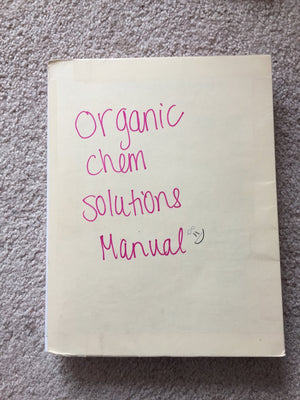 organic
chem
solutions
Manual